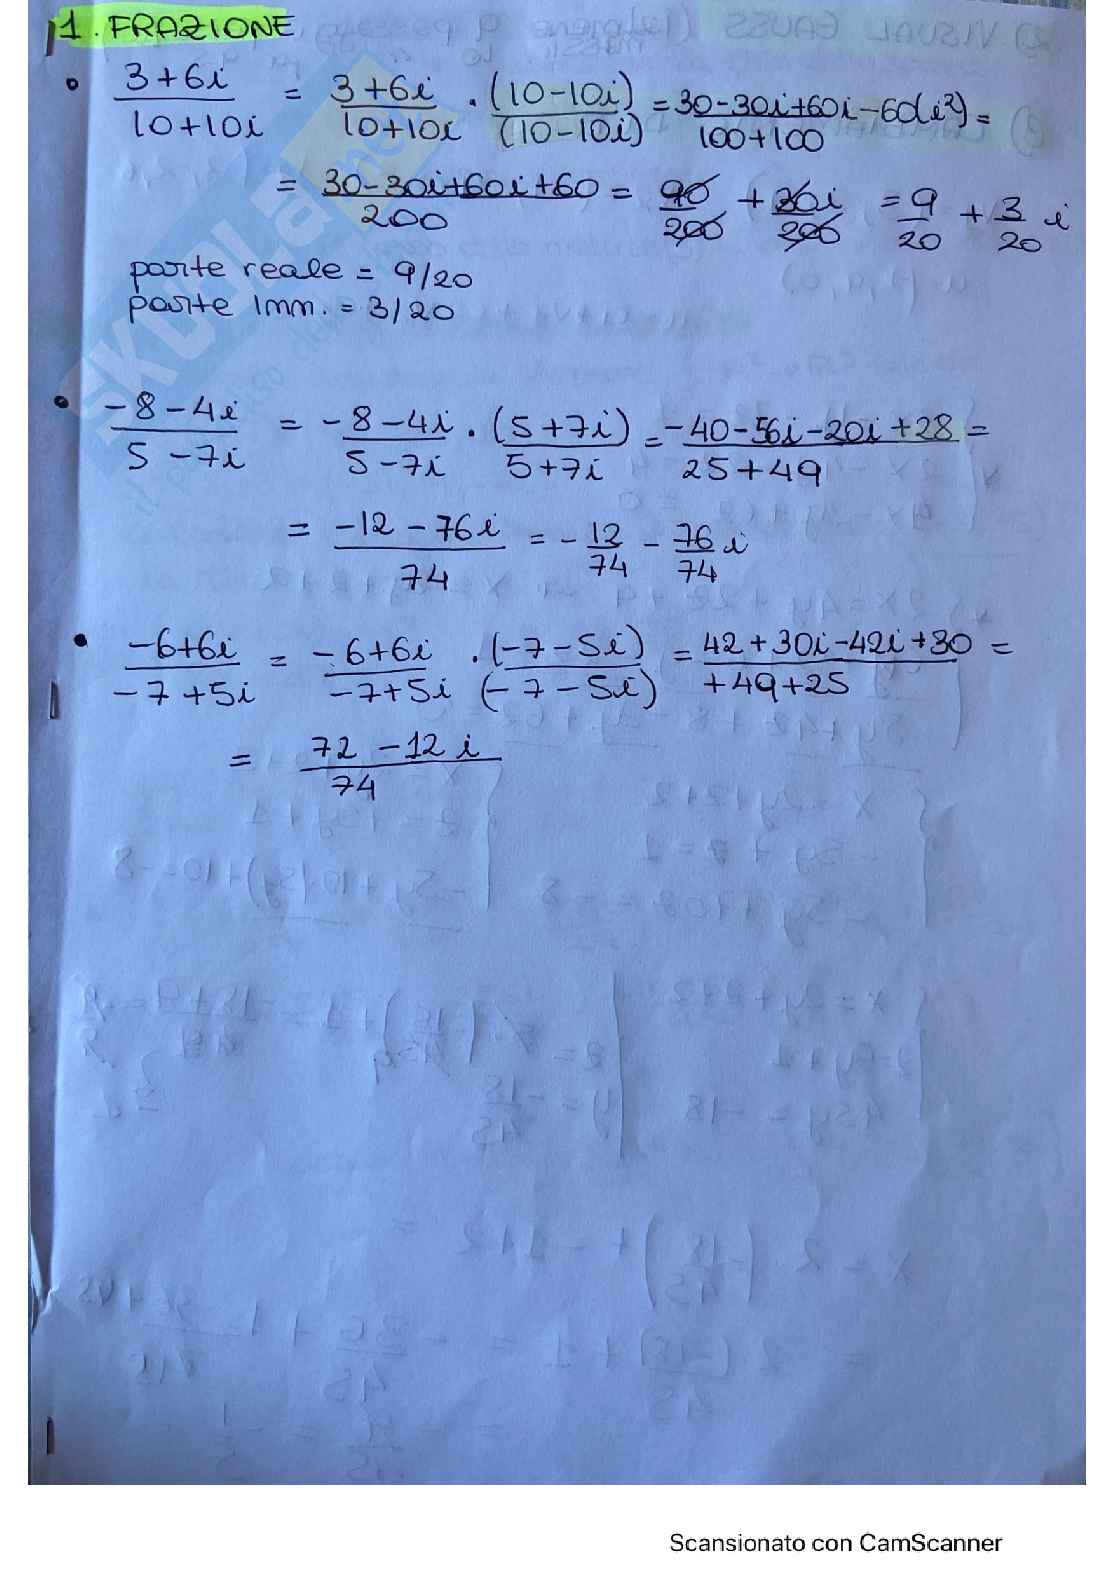 1. FRAZIONE
• 3+6i / 10+10i = 3+6i / 10+10i · (10-10i) / (10-10i) = 30-30i+60i-60(i²) / 100+100 =
= 30-30i+60i+60 / 200 = 90/200 + 30i/200 = 9/20 + 3/20 i
parte reale = 9/20
parte Imm. = 3/20
• -8-4i / 5-7i = -8-4i / 5-7i · (5+7i) / 5+7i = -40-56i-20i+28 / 25+49 =
= -12-76i / 74 = -12/74 - 76/74 i
• -6+6i / -7+5i = -6+6i / -7+5i · (-7-5i) / (-7-5i) = 42+30i-42i+30 / +49+25 =
= 72-12i / 74
SKUOLA.net
Scansionato con CamScanner